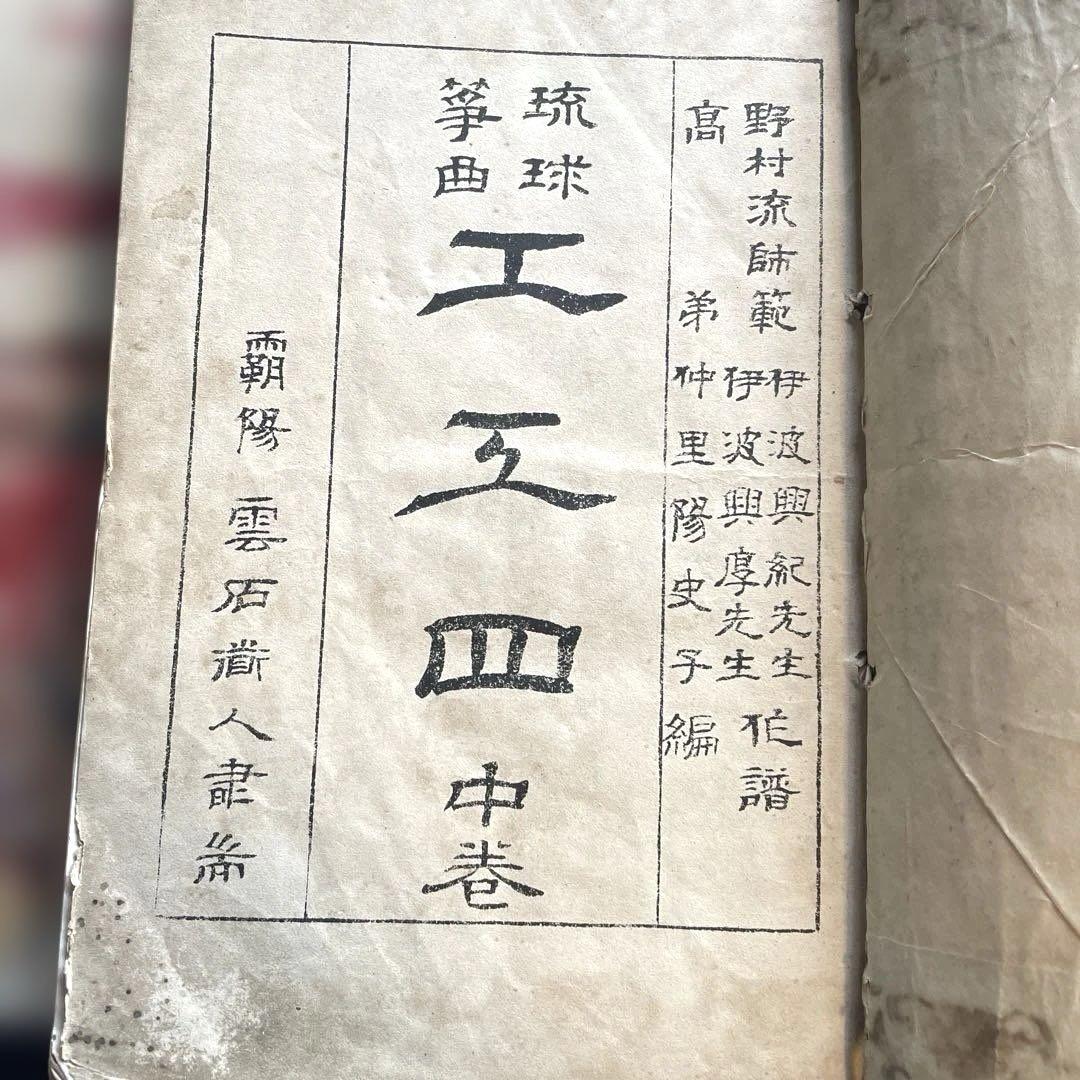 野村流師範
伊波興紀先生
伊波興厚先生
作譜
髙弟仲里陽史子編
琉球
箏曲
工工四
中巻
覇陽 雲石道人